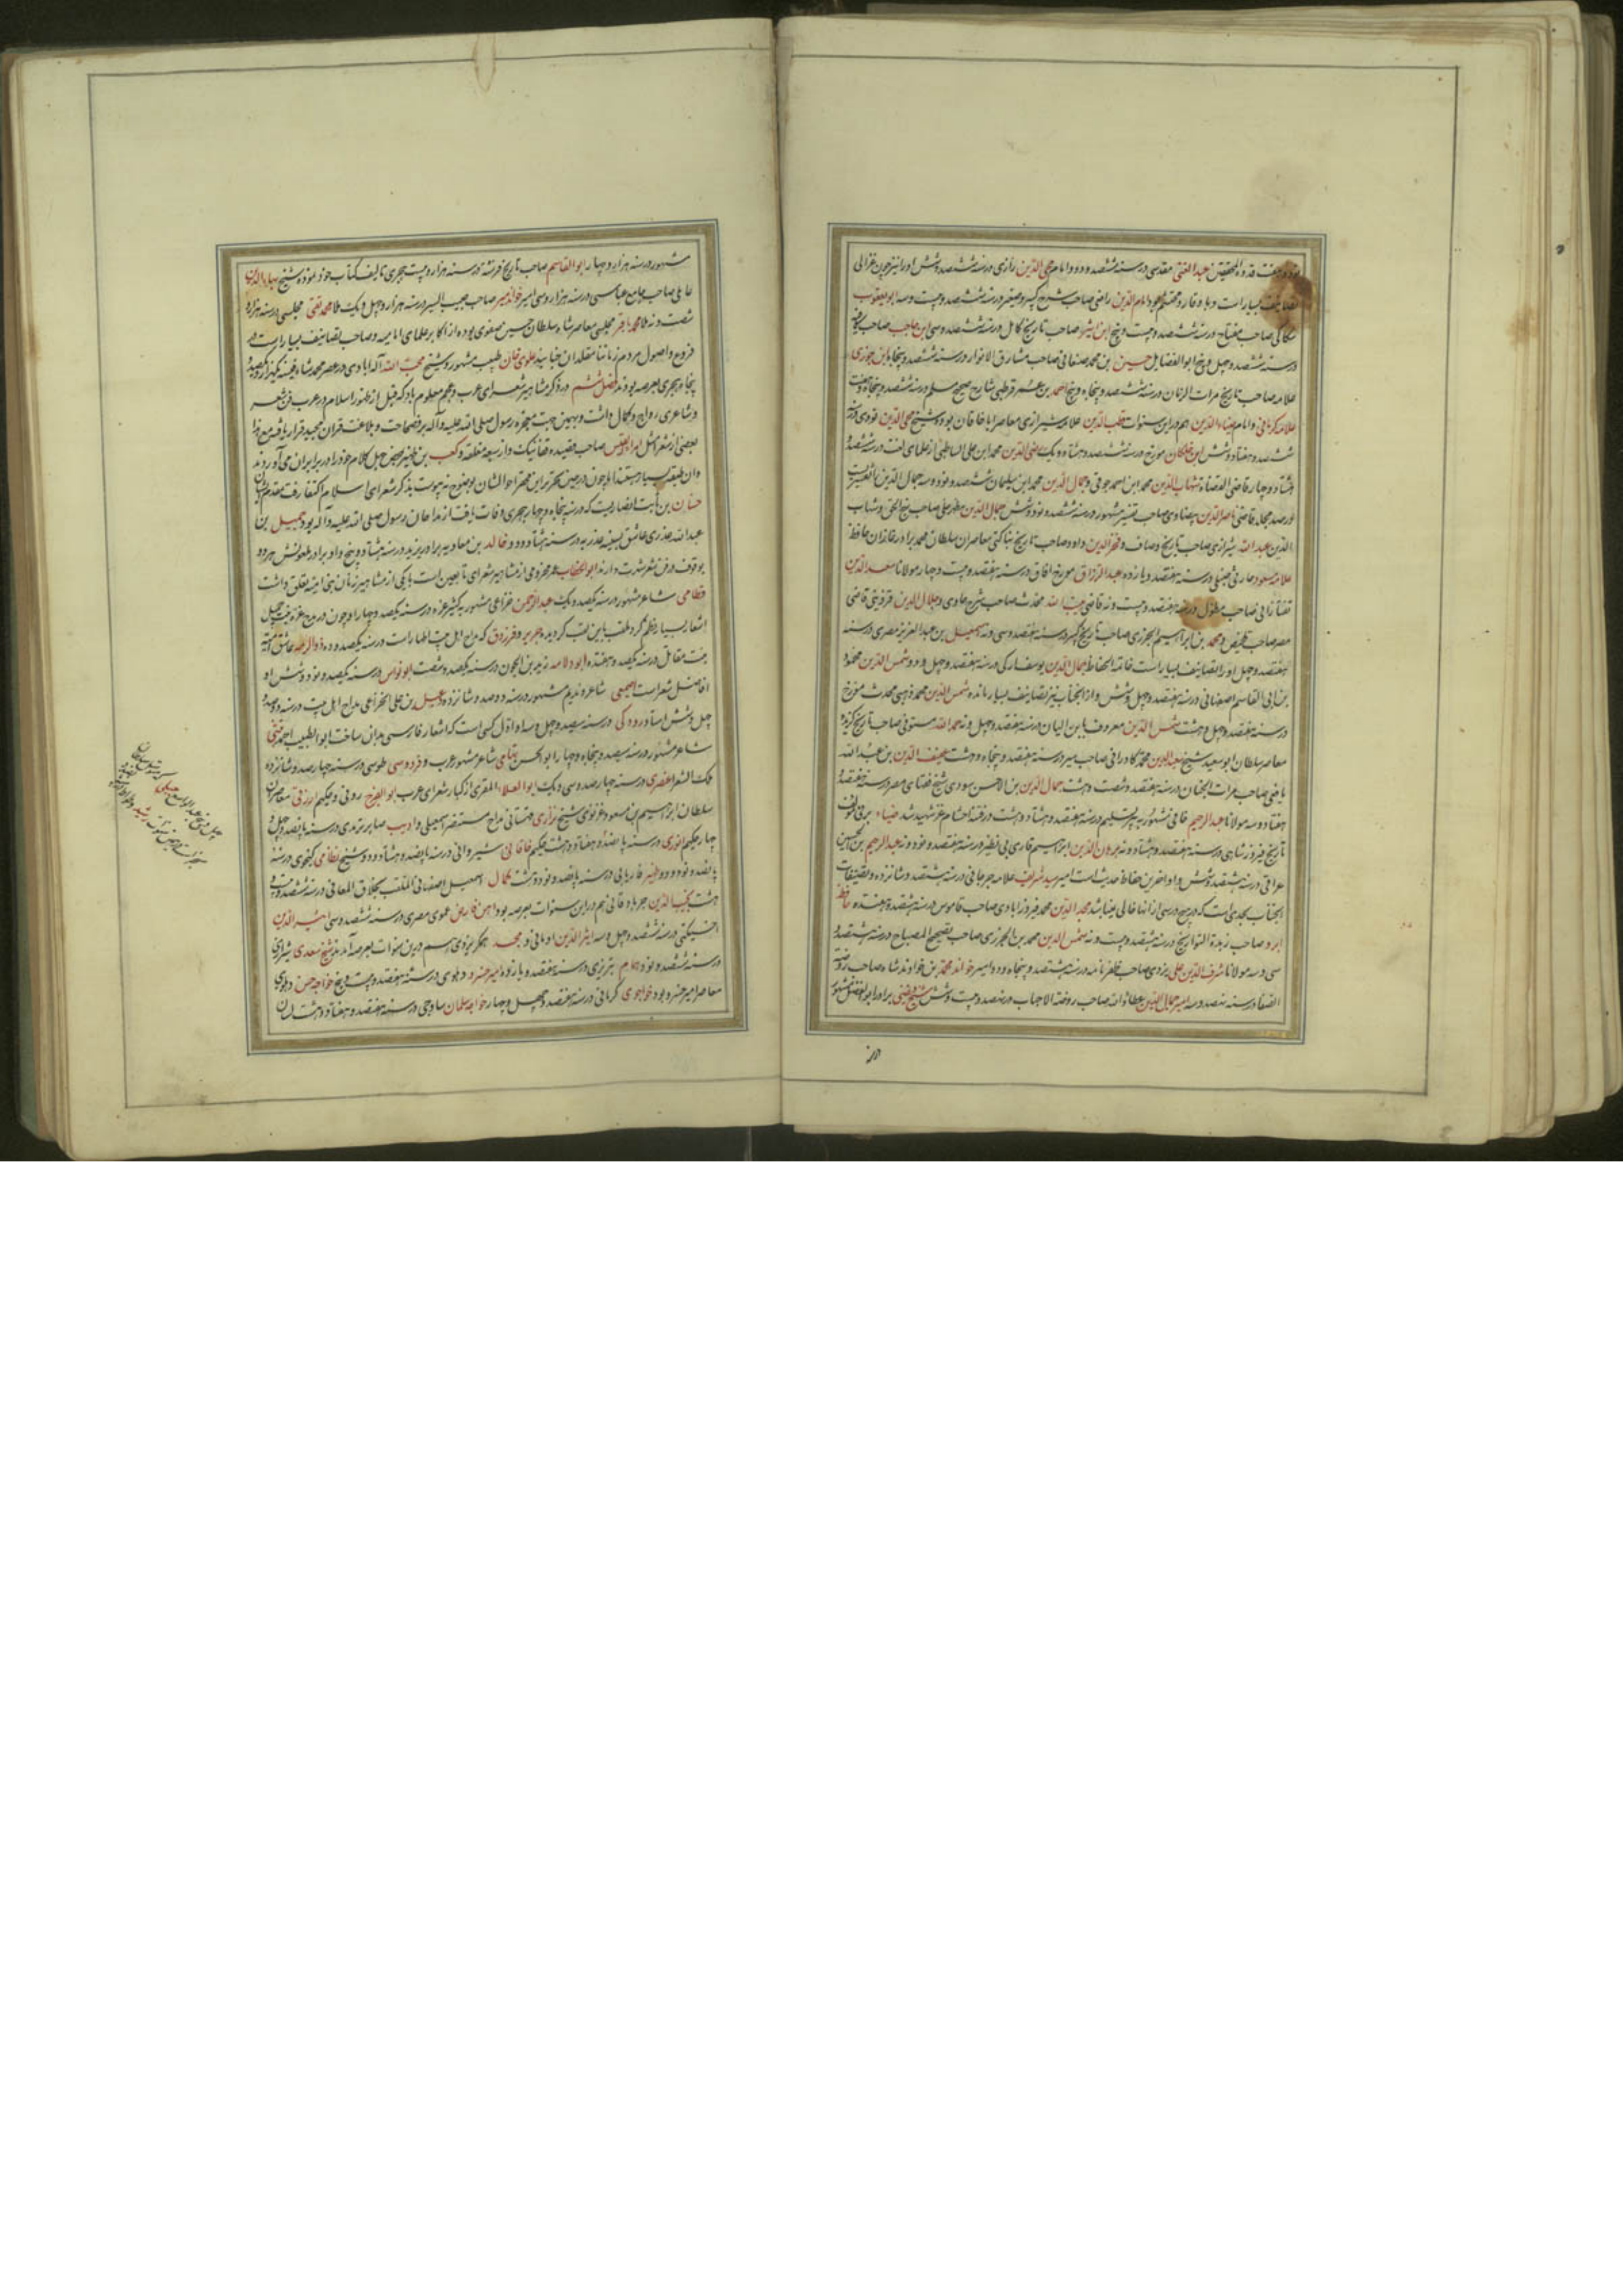 نود و هفت قدوة المحققین عبد الغنی مقدسی در سنه ششصد و دو و امام محی الدین رازی در سنه ششصد و شش او را نیز چون غزالی
تصانیف بسیار است و با وقار و محتشم بود امام الدین رافعی صاحب شرح کبیر و صغیر در سنه ششصد و بیست و سه ابو یعقوب
سکاکی صاحب مفتاح در سنه ششصد و بیست و پنج ابن اثیر صاحب تاریخ کامل در سنه ششصد و سی ابن حاجب صاحب کافیه
در سنه ششصد و چهل و پنج ابو الفضایل حسین بن محمد صنعانی صاحب مشارق الانوار در سنه ششصد و پنجاه ابن جوزی
علامه صاحب تاریخ مرات الزمان در سنه ششصد و پنجاه و پنج احمد بن عمر قرطبی شارح صحیح مسلم در سنه ششصد و پنجاه و هفت
علامه کرمانی و امام ضیاء الدین هم در این سنوات قطب الدین علامه شیرازی معاصر اباقا خان بوده شیخ محی الدین نووی در سنه
ششصد و هفتاد و شش ابن خلکان مورخ در سنه ششصد و هشتاد و یک رضی الدین محمد ابن علی الساطبی از علمای لغت در سنه ششصد و
هشتاد و چهار قاضی القضاة شهاب الدین محمد ابن احمد جوفی و جمال الدین محمد ابن سلیمان ششصد و نود و سه جمال الدین
در صد مجلد قاضی ناصر الدین بیضاوی صاحب تفسیر مشهور در سنه ششصد و نود و شش جمال الدین مطهر حلی صاحب نهج الحق و شهاب
الدین عبد الله شیرازی صاحب تاریخ وصاف و فخر الدین داود صاحب تاریخ بناکتی معاصران سلطان محمد برادر غازان حافظ
علامه مسعود حارثی حنبلی در سنه هفتصد و یازده عبد الرزاق مورخ افاق در سنه هفتصد و بیست و چهار مولانا سعد الدین
تفتازانی صاحب مطول در سنه هفتصد و بیست و نه قاضی هبة الله محدث صاحب شرح حاوی و جلال الدین قزوینی قاضی
مصر صاحب تلخیص و محمد بن ابراهیم الجزری صاحب تاریخ کبیر در سنه هفتصد و سی و نه اسمعیل بن عبد العزیز مصری در سنه
هفتصد و چهل او را تصانیف بسیار است خاتمة الحفاظ جمال الدین یوسف ارکی در سنه هفتصد و چهل و دو شمس الدین محمود
بن ابی القاسم اصفهانی در سنه هفتصد و چهل و شش و از انجناب نیز تصانیف بسیار مانده شمس الدین محمد ذهبی محدث مورخ
در سنه هفتصد و چهل و هشت شمس الدین معروف بابن اللبان در سنه هفتصد و چهل و نه حمد الله مستوفی صاحب تاریخ گزیده
معاصر سلطان ابو سعید شیخ سعید الدین محمد کازرانی صاحب سیر در سنه هفتصد و پنجاه و هشت عفیف الدین بن عبد الله
یافعی صاحب مرات الجنان در سنه هفتصد و شصت و هشت جمال الدین بن الاحسن سودی شیخ قضای مصر در سنه هفتصد و
هفتاد و سه مولانا عبد الرحیم خافی مشهور به پیر تسلیم در سنه هفتصد و هشتاد و هشت در فتنه احشام غز شهید شد ضیاء برنی مؤلف
تاریخ فیروز شاهی در سنه هفتصد و هشتاد و نه برهان الدین ابراهیم قاری بی نظیر در سنه هفتصد و نود و نه عبد الرحیم بن الحسین
عراقی در سنه هشتصد و شش و او اخرین حفاظ حدیث است امیر سید شریف علامه جرجانی در سنه هشتصد و شانزده و تصنیفات
انجناب بحدی است که در هیچ درسی از انها خالی نمیباشد مجد الدین محمد فیروزابادی صاحب قاموس در سنه هشتصد و هفده حافظ
ابرو صاحب زبدة التواریخ در سنه هشتصد و بیست و نه شمس الدین محمد بن الجزری صاحب تصحیح المصباح در سنه هشتصد و
سی و سه مولانا شرف الدین علی یزدی صاحب ظفر نامه در سنه هشتصد و پنجاه و دو امیر خواند محمد بن خواوند شاه صاحب روضة
الصفا در سنه نهصد و سه امیر جمال الدین عطاء الله صاحب روضة الاحباب در نهصد و بیست و شش شیخ فیضی برادر ابو الفضل مشهور
در سنه
مشهور در سنه هزار و چهار ابو القاسم صاحب تاریخ فرشته در سنه هزار و بیست هجری تالیف کتاب خود نموده شیخ بهاء الدین
عاملی صاحب جامع عباسی در سنه هزار و سی امیر خواندمیر صاحب حبیب السیر در سنه هزار و چهل و یک ملا محمد تقی مجلسی در سنه هزار و
شصت و نه ملا محمد باقر مجلسی معاصر شاه سلطان حسین صفوی بوده از اکابر علمای امامیه و صاحب تصانیف بسیار است و در
فروع و اصول مردم زمان ما مقلدان جناب سید علوی خان طبیب مشهور و شیخ محب الله اله ابادی در عصر محمد شاه
پنجاه هجری بعرصه بودند فصل ششم در ذکر مشاهیر شعرای عرب و عجم معلوم باد که قبل از ظهور اسلام در عرب فن شعر
و شاعری رواج و کمال داشت و بهمین جهت معجزه رسول صلی الله علیه و آله بر فصاحت و بلاغت قران مجید قرار یافت مع هذا
بعضی از شعرا مثل امرء القیس صاحب قصیده قفا نبک و از سبعه معلقه و کعب بن زهیر
و ان طبقه بسیار هستند اما چون در حین تحریر این مختصر احوال شان بوضوح نه پیوست بذکر شعرای اسلام اکتفا رفت
حسان بن ثابت انصاریست که در سنه پنجاه و چهار هجری وفات یافت از مداحان رسول صلی الله علیه و آله بود جمیل بن
عبد الله عذری عاشق بثینه عذریه در سنه هشتاد و دو و خالد بن معاویه برادر یزید در سنه هشتاد و پنج و او برادر ملعونش هر دو
بوقوف در فن شعر شهرت دارند ابو الخطاب عمر مخزومی از مشاهیر شعرای تابعین است با یکی از مشاهیر زنان بنی امیه تعلق داشت
قطامی شاعر مشهور در سنه یکصد و یک عبد الرحمن خزاعی مشهور به کثیر عزه در سنه یکصد و چهار او چون در مدح عزه
اشعار بسیار نظم کرد ملقب باین لقب گردیده جریر و فرزدق که مداح اهل بیت اطهار است در سنه یکصد و ده ذو الرمه عاشق میه
بنت مقاتل در سنه یکصد و هفتده ابو دلامه زید بن الجون در سنه یکصد و شصت ابو نواس در سنه یکصد و نود و شش او
افضل شعرا است اصمعی شاعر و ندیم مشهور در سنه دو صد و شانزده دعبل بن علی الخزاعی مداح اهل بیت در سنه دو صد و
چهل و شش استاد رودکی در سنه سیصد و چهل و سه او اول کسی است که اشعار فارسی مدون ساخت ابو الطبیب احمد متنبی
شاعر مشهور در سنه سیصد و پنجاه و چهار ابو الحسن تهامی شاعر مشهور عرب و فردوسی طوسی در سنه چهار صد و شانزده
ملک الشعرا عنصری در سنه چهار صد و سی و یک ابو العلاء المقری از کبار شعرای عرب ابو الفرج رونی و حکیم ازرقی معاصران
سلطان ابراهیم بن مسعود غزنوی شیخ نزاری قهستانی مداح مستنصر اسمعیلی و ادیب صابر ترمدی در سنه پانصد و چهل و
چهار حکیم انوری در سنه پانصد و هفتاد و هشت حکیم خاقانی شیروانی در سنه پانصد و هشتاد و دو و شیخ نظامی گنجوی در سنه
پانصد و نود و دو ظهیر فاریابی در سنه پانصد و نود و هشت کمال اسمعیل اصفهانی الملقب بخلاق المعانی در سنه ششصد و بیست و
هشت نجیب الدین جرباد قانی هم در این سنوات بعرصه بود ابن فارض حموی مصری در سنه ششصد و سی اثیر الدین
اخسیکتی در سنه ششصد و چهل و سه اثیر الدین اومانی و مجد همگر یزدی هم درین سنوات بعرصه آمدند شیخ سعدی شیرازی
در سنه ششصد و نود و همام تبریزی در سنه هفتصد و یازده امیر خسرو دهلوی در سنه هفتصد و بیست و پنج خواجه حسن دهلوی
معاصر امیر خسرو بود خواجوی کرمانی در سنه هفتصد و چهل و چهار خواجه سلمان ساوجی در سنه هفتصد و هفتاد و هشت لسان